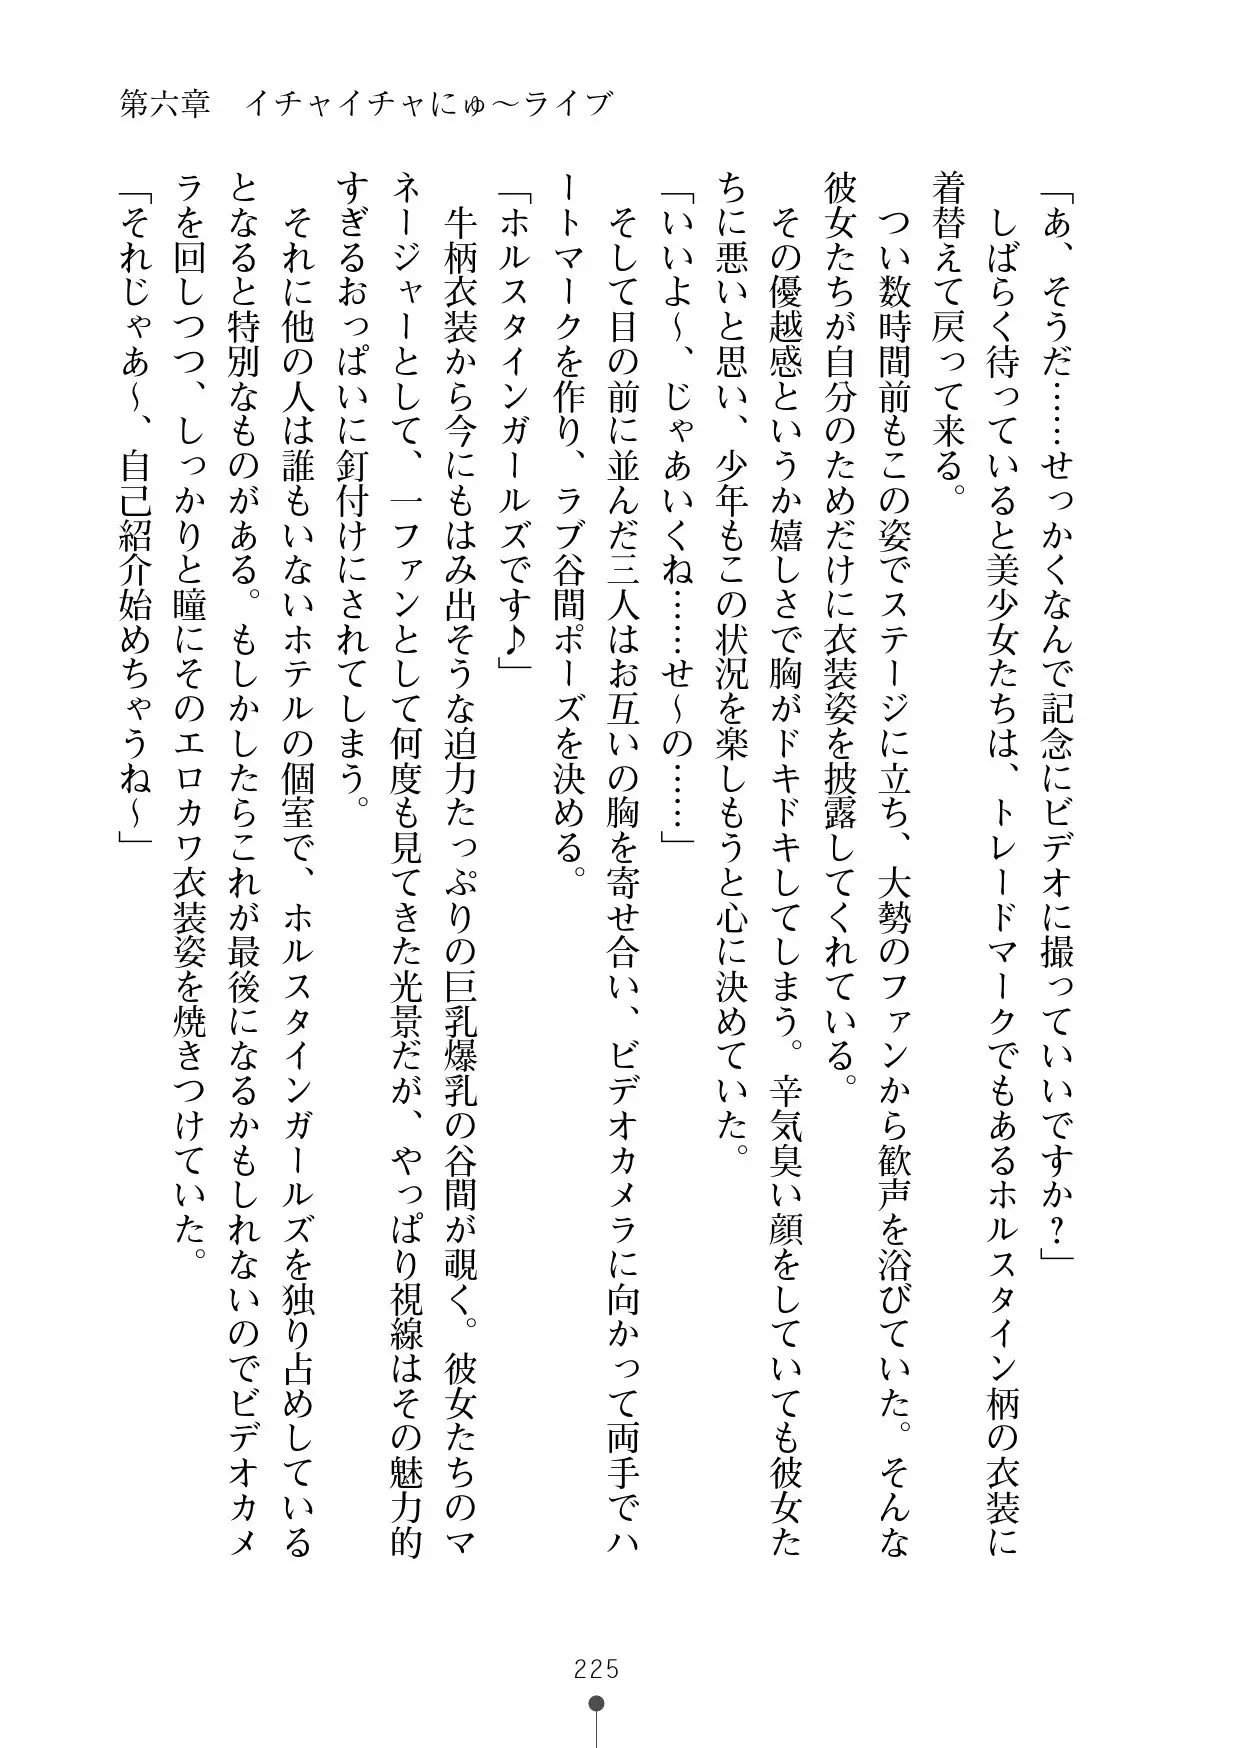 第六章　イチャイチャにゅ〜ライブ
「あ、そうだ……せっかくなんで記念にビデオに撮っていいですか？」
　しばらく待っていると美少女たちは、トレードマークでもあるホルスタイン柄の衣装に
着替えて戻って来る。
　つい数時間前もこの姿でステージに立ち、大勢のファンから歓声を浴びていた。そんな
彼女たちが自分のためだけに衣装姿を披露してくれている。
　その優越感というか嬉しさで胸がドキドキしてしまう。辛気臭い顔をしていても彼女た
ちに悪いと思い、少年もこの状況を楽しもうと心に決めていた。
「いいよ〜、じゃあいくね……せ〜の……」
　そして目の前に並んだ三人はお互いの胸を寄せ合い、ビデオカメラに向かって両手でハ
ートマークを作り、ラブ谷間ポーズを決める。
「ホルスタインガールズです♪」
　牛柄衣装から今にもはみ出そうな迫力たっぷりの巨乳爆乳の谷間が覗く。彼女たちのマ
ネージャーとして、一ファンとして何度も見てきた光景だが、やっぱり視線はその魅力的
すぎるおっぱいに釘付けにされてしまう。
　それに他の人は誰もいないホテルの個室で、ホルスタインガールズを独り占めしている
となると特別なものがある。もしかしたらこれが最後になるかもしれないのでビデオカメ
ラを回しつつ、しっかりと瞳にそのエロカワ衣装姿を焼きつけていた。
「それじゃあ〜、自己紹介始めちゃうね〜」
225